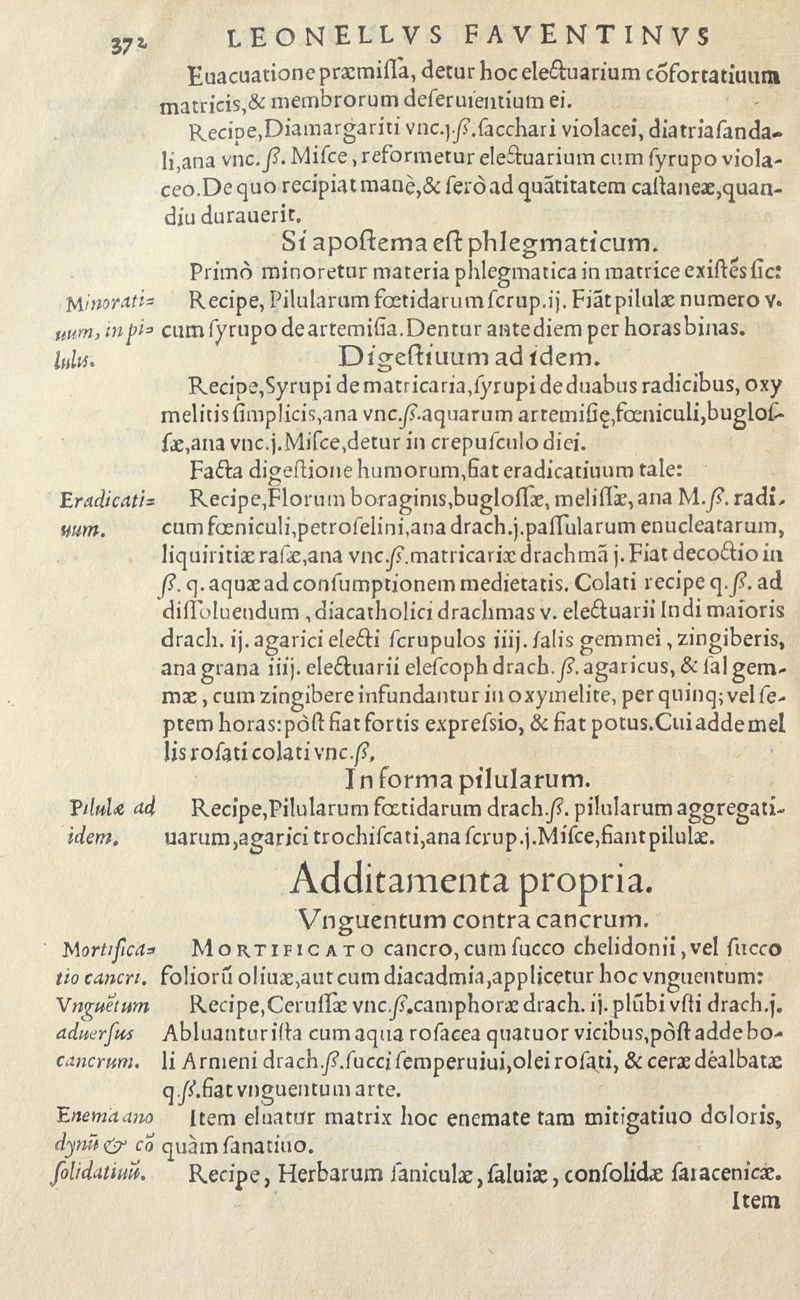 372 LEONELLVS FAVENTINVS
Euacuatione præmiſſa, detur hoc electuarium cõfortatiuum
matricis,& membrorum deſeruientium ei.
Recipe,Diamargariti vnc.j.ß.ſacchari violacei, diatriaſanda-
li,ana vnc.ß. Miſce, reformetur electuarium cum ſyrupo viola-
ceo.De quo recipiat manè,& ſerò ad quãtitatem caſtaneæ,quan-
diu durauerit.
Si apoſtema eſt phlegmaticum.
Primò minoretur materia phlegmatica in matrice exiſtẽs ſic:
Minorati= Recipe, Pilularum fœtidarum ſcrup.ij. Fiãt pilulæ numero v.
uum, in pi= cum ſyrupo de artemiſia.Dentur ante diem per horas binas.
lulis. Digeſtiuum ad idem.
Recipe,Syrupi de matricaria,ſyrupi de duabus radicibus, oxy
melitis ſimplicis,ana vnc.ß.aquarum artemiſię,fœniculi,bugloſ-
ſæ,ana vnc.j.Miſce,detur in crepuſculo diei.
Facta digeſtione humorum,fiat eradicatiuum tale:
Eradicati= Recipe,Florum boraginis,bugloſſæ, meliſſæ, ana M.ß. radi-
uum. cum fœniculi,petroſelini,ana drach.j.paſſularum enucleatarum,
liquiritiæ raſæ,ana vnc.ß.matricariæ drachmã j. Fiat decoctio in
ß. q. aquæ ad conſumptionem medietatis. Colati recipe q.ß. ad
diſſoluendum , diacatholici drachmas v. electuarii Indi maioris
drach. ij. agarici electi ſcrupulos iiij. ſalis gemmei , zingiberis,
ana grana iiij. electuarii eleſcoph drach.ß. agaricus, & ſal gem-
mæ , cum zingibere infundantur in oxymelite, per quinq; vel ſe-
ptem horas:pòſt fiat fortis expreſsio, & fiat potus.Cui adde mel
lis roſati colati vnc.ß.
In forma pilularum.
Pilulæ ad Recipe,Pilularum fœtidarum drach.ß. pilularum aggregati-
idem. uarum,agarici trochiſcati,ana ſcrup.j.Miſce,fiant pilulæ.
Additamenta propria.
Vnguentum contra cancrum.
Mortifica= MORTIFICATO cancro, cum ſucco chelidonii , vel ſucco
tio cancri. foliorũ oliuæ,aut cum diacadmia,applicetur hoc vnguentum:
Vnguẽtum Recipe,Ceruſſæ vnc.ß.camphoræ drach. ij. plũbi vſti drach.j.
aduerſus Abluantur iſta cum aqua roſacea quatuor vicibus,pòſt adde bo-
cancrum. li Armeni drach.ß.ſucci ſemperuiui,olei roſati, & ceræ dealbatæ
q.ß.fiat vnguentum arte.
Enema ano Item eluatur matrix hoc enemate tam mitigatiuo doloris,
dynũ & cõ quàm ſanatiuo.
ſolidatiuũ. Recipe, Herbarum ſaniculæ, ſaluiæ , conſolidæ ſaracenicæ.
Item